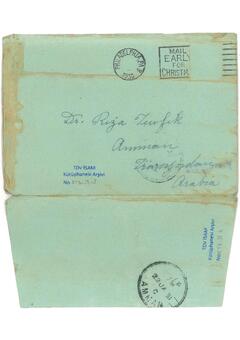 PHILADELPHIA, PA.
MAIL
EARLY
FOR
CHRISTMAS
Dr. Riza Tevfik
Amman
Transjordania
Arabia
TDV İSAM
Kütüphanesi Arşivi
No
TDV İSAM
Kütüphanesi Arşivi
No
AMMAN